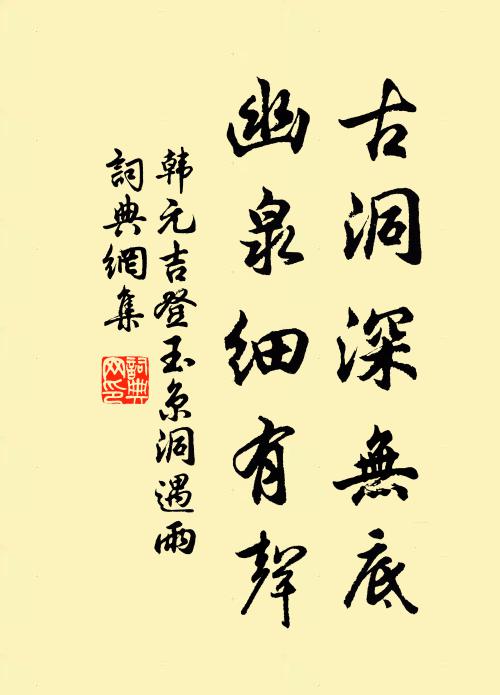 古洞深無底
幽泉細有聲
韩元吉登玉京洞遇雨
詞典網集
詞典网印